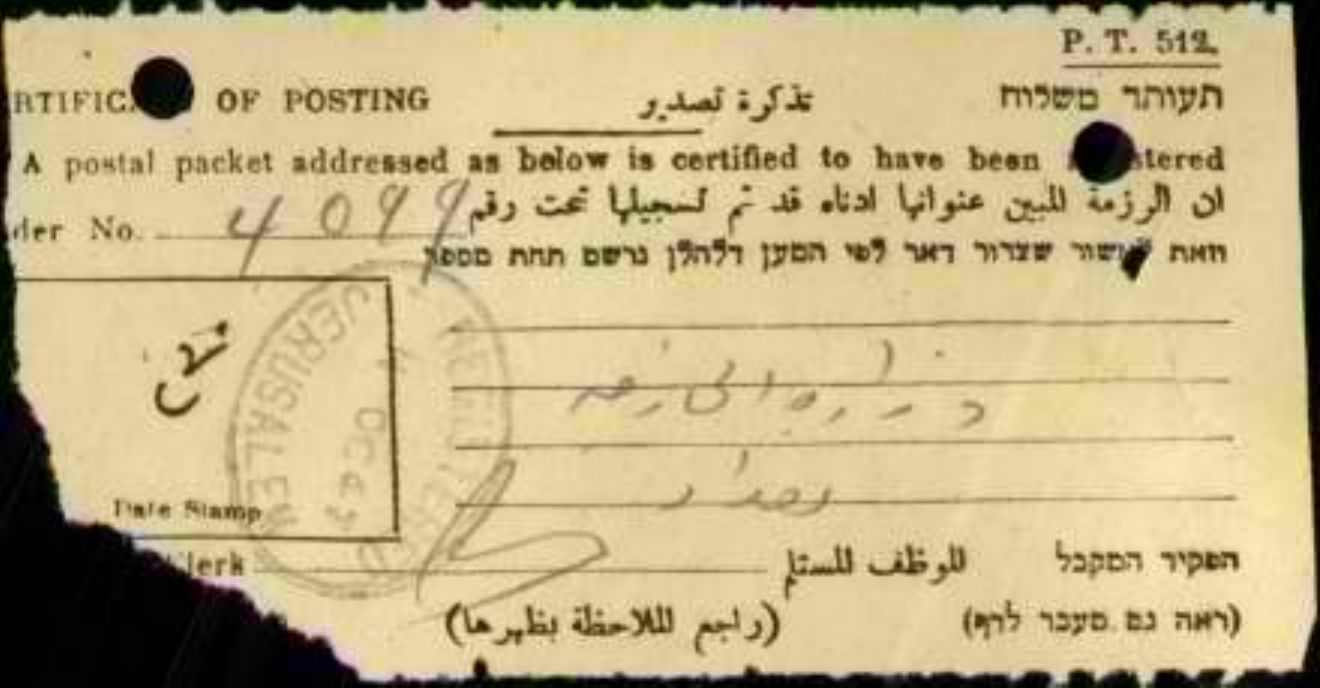 P. T. 512.
RTIFICA OF POSTING تذكرة تصدير תעודת משלוח
A postal packet addressed as below is certified to have been stered
ان الرزمة المبين عنوانها ادناه قد تم تسجيلها تحت رقم
der No. 4099
וזאת לאשור שצרור דאר לפי המען דלהלן נרשם תחת מספר
REGISTERED
JERUSALEM
OC 42
وزارة الخارجية
بغداد
Date Stamp
lerk الموظف المستلم הפקיד המקבל
(راجع الملاحظة بظهرها) (ראה גם מעבר לדף)